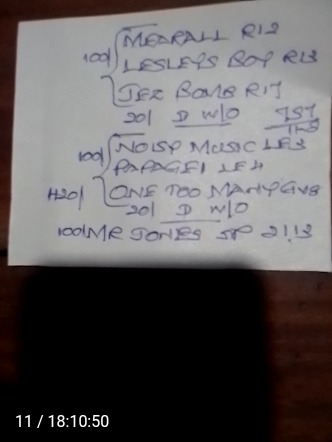 100/ MEDRALL R12
LESLEYS BOY R13
JEZ BOMB R17
20/ D W/O 757
100/ NOISY MUSIC LE3
PAPAGEI LE4
ONE TOO MANY GV8
20/ D W/O
100/ MR JONES SP 2!!3
11 / 18:10:50